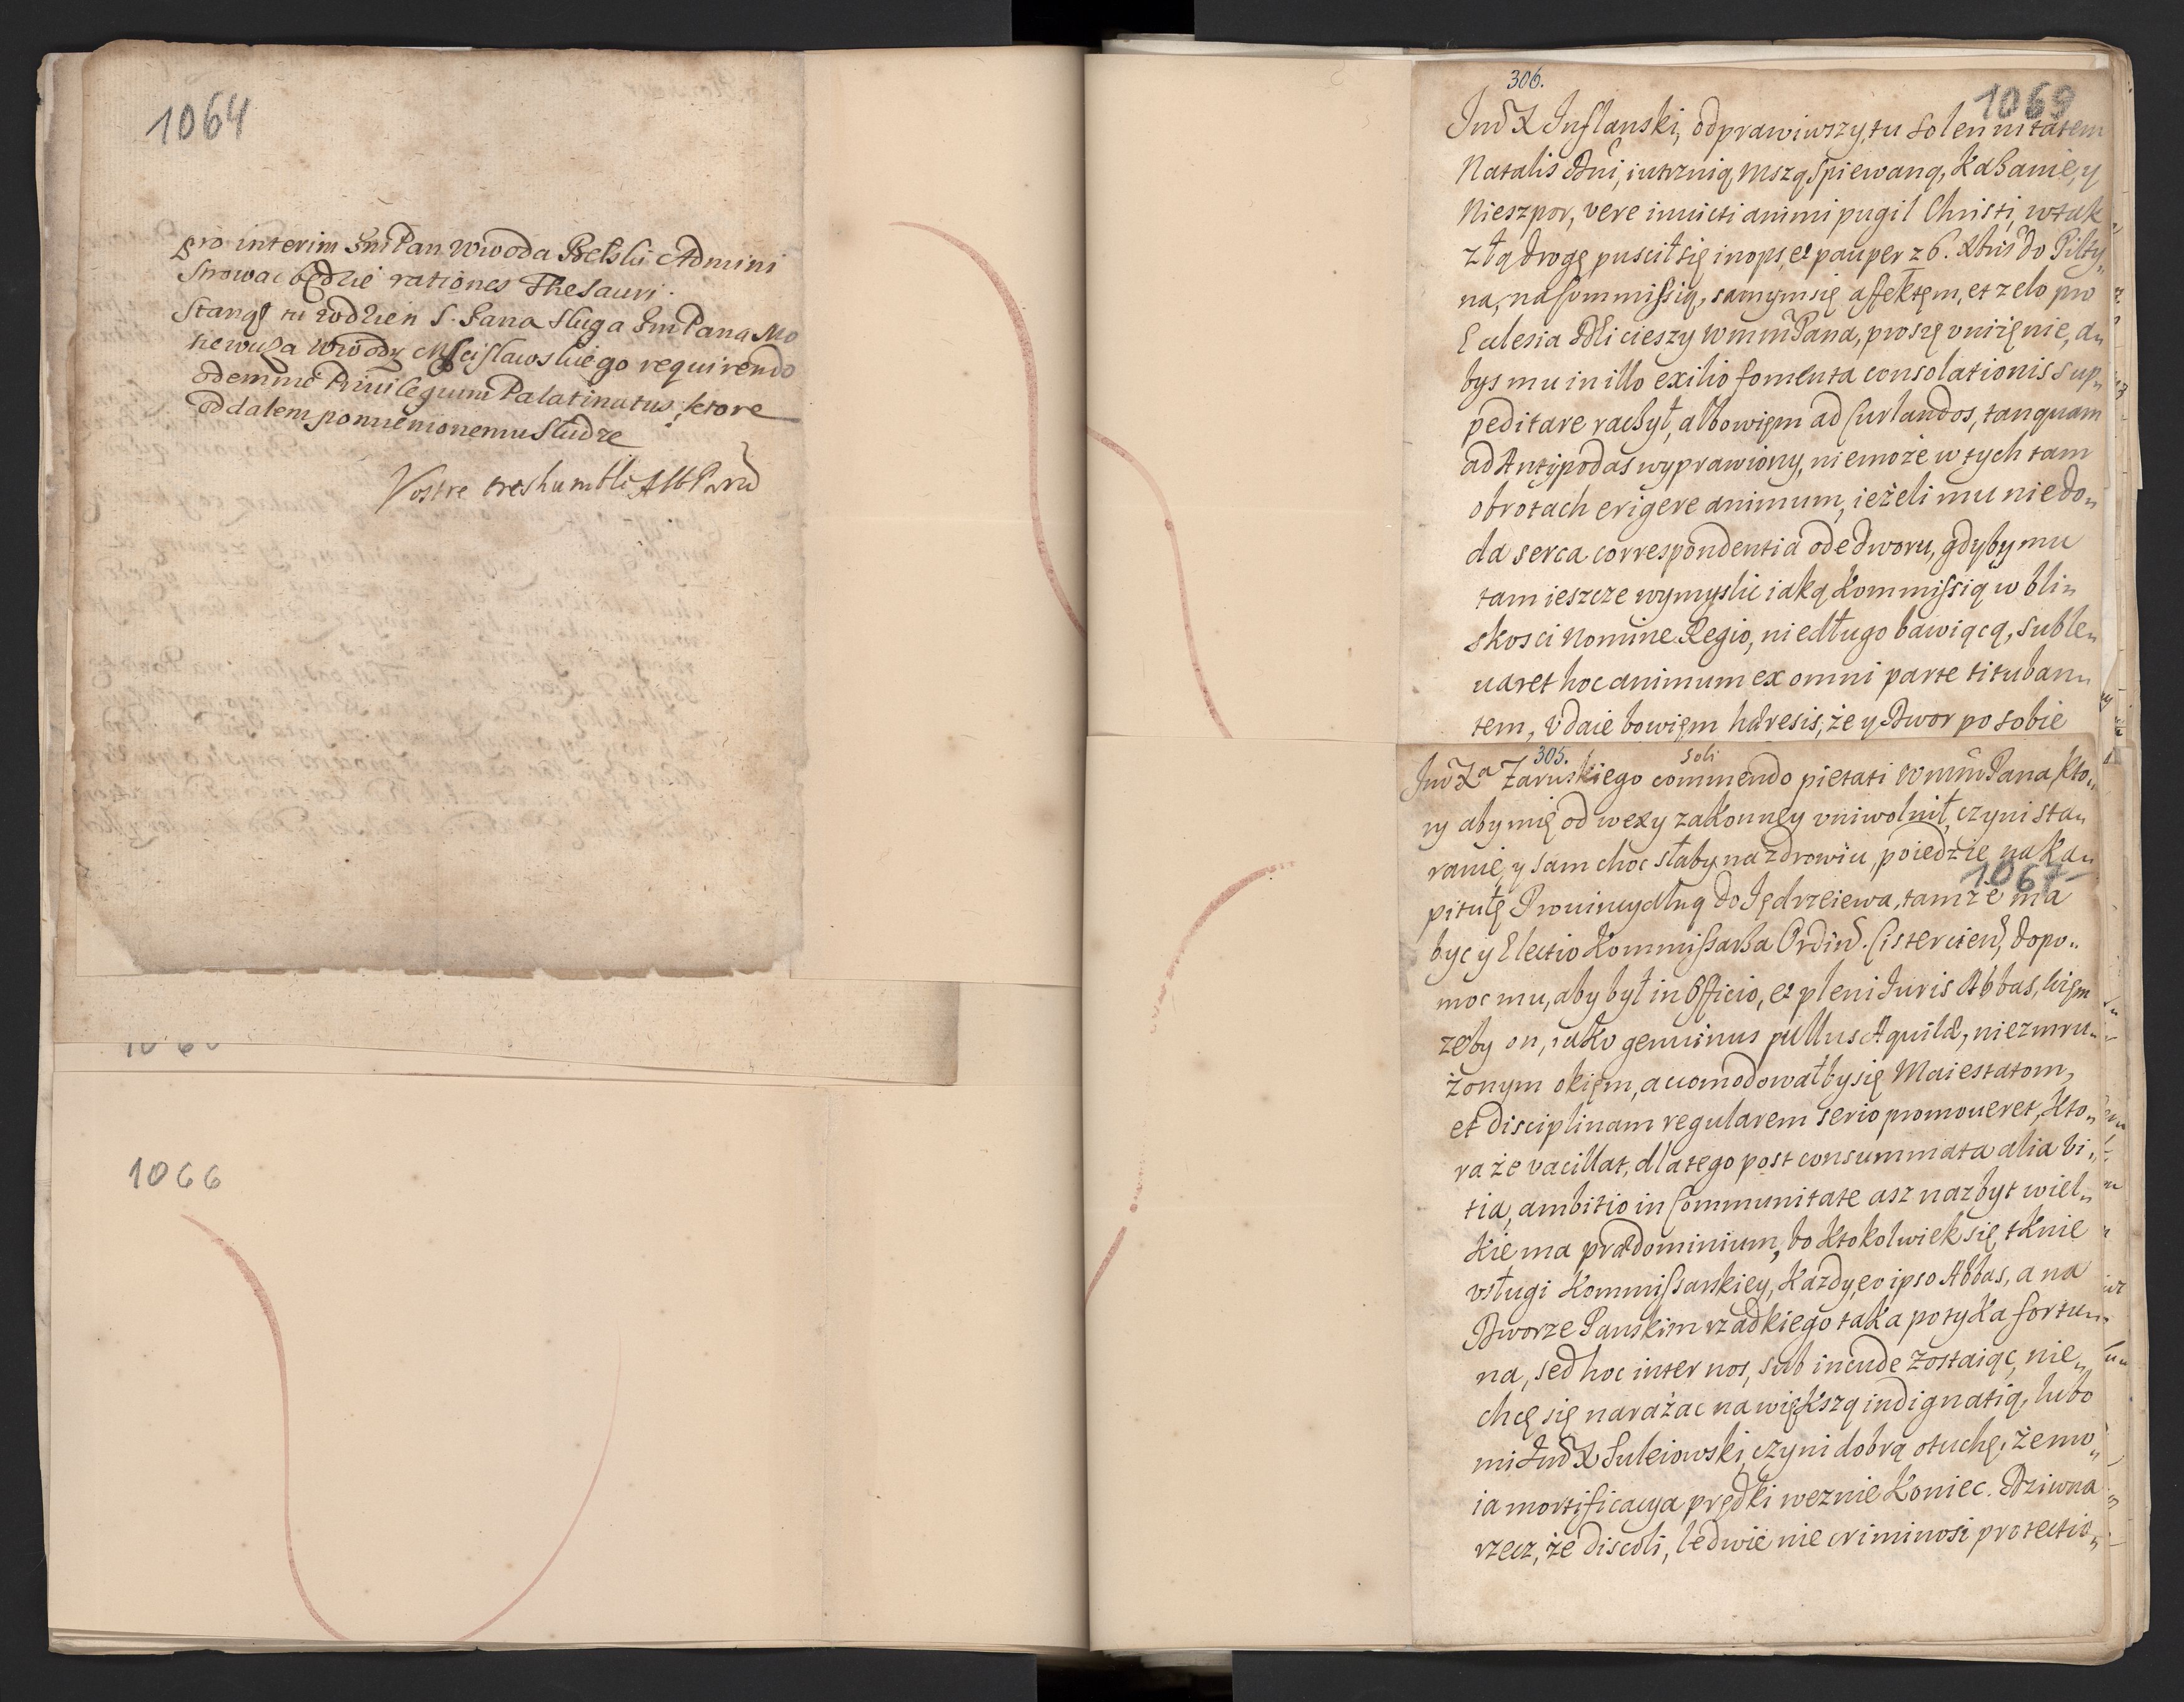 1064
pro interim Jm Pan Wwoda Bełski Admini
strowac będzie rationes Thesauri.
Stanął tu w dzien S. Jana sługa Jm Pana
Wwody Mscisławskiego requirendo
odemnie Privilegium Palatinatus, ktore
oddałem pomienionemu słudze
Vostre tres humble
1066
306.
1069
Jnflanski, odprawiwszy, tu solennitatem
Natalis Dni, iutrznią, Mszą spiewaną, Kazanie, y
Nieszpor, vere inuicti animi pugil Christi, w tak
złą drogę puscił się inops, et pauper z 6. Xtus do Pilty„
na, na Commissią, samym się affektem, et zelo pro
Eclesia Dei cieszy WmmPana, proszę vniżenie, a„
bys mu in illo exilio fomenta consolationis sup„
peditare raczył, albowięm ad Curlandos, tanquam
ad Antipodas wyprawiony, niemoże w tych tam
obrotach erigere animum, ieżeli mu nie do„
da serca correspondentia ode dworu, gdyby mu
tam ieszcze wymyslic iaką Kommissią w bli„
skosci Nomine Regio, niedługo bawiącą, suble„
uaret hoc animum ex omni parte tituban„
tem, vdaie bowięm hæresis, że y Dwor po sobie
305.
soli
Zaruskiego commendo pietati WmmPana, kto„
ry aby mię od wexy zakonney vwolnił, czyni sta„
ranie, y sam choc słaby na zdrowiu, poiedzie na Ka„
1067
pitułę Prouincyalną do Jędrzeiewa, tamże ma
byc y Electio Kommissarza Ordin. Cistercien, dopo„
moc mu, aby był in Officio, et pleni Juris Abbas, więm
żeby on, iako genuinus pullus Aquilæ, niezmru„
żonym okięm, accomodowałby się Maiestatom,
et disciplinam regularem serio promoueret, kto„
ra że vacillat, dlatego post consummata alia vi„
tia, ambitio in Communitate asz nazbyt wiel„
kie ma prædominium, bo ktokolwiek się tknie
vsługi Kommissarskiey, Kazdy, eo ipso Abbas, a na
Dworze Panskim rzadkiego taka potyka fortu„
na, sed hoc inter nos, sub incude zostaiąc, nie„
chcę się narażac na większą indignatią, lubo
mi Suleiowski, czyni dobrą otuchę, że mo„
ia mortificacya prędki wezmie Koniec. Dziwna
rzecz, że discoli, ledwie nie criminosi protectio„